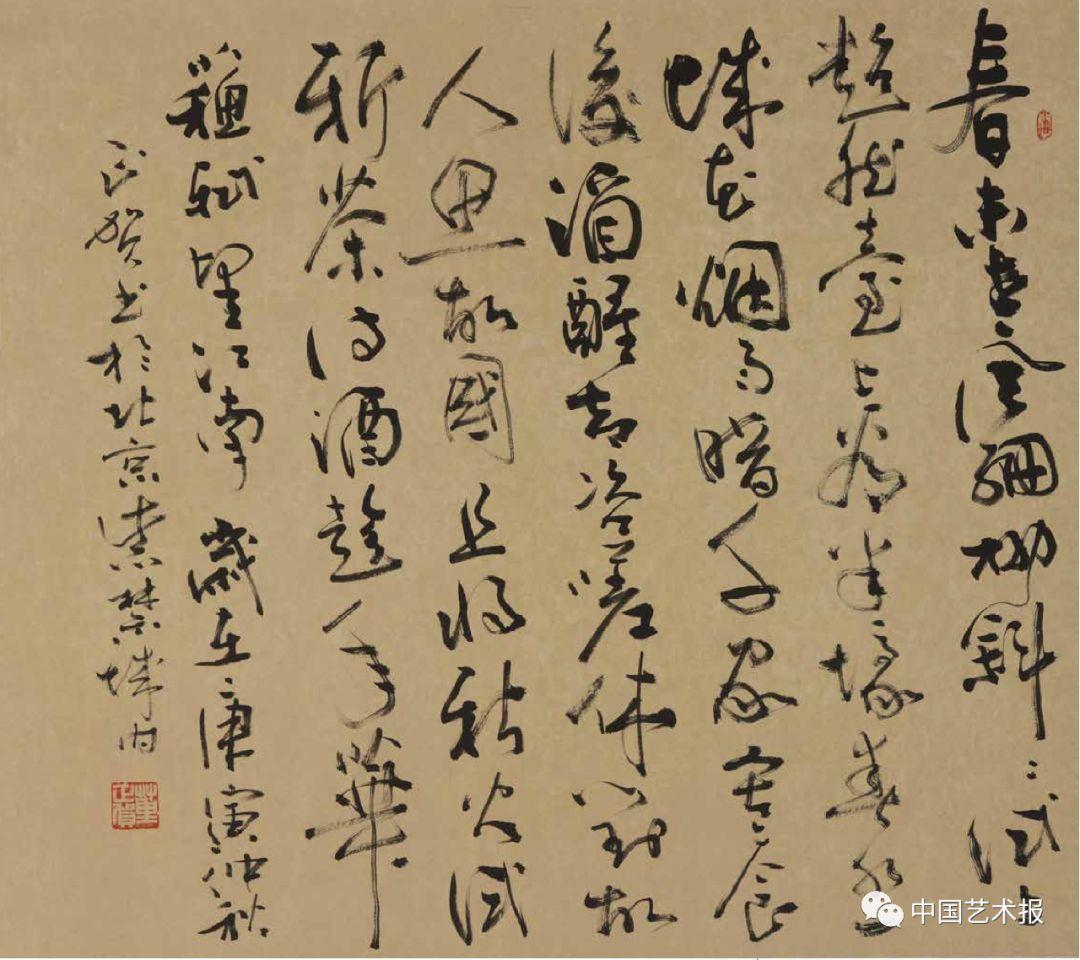 春未老風細柳斜〻試上
超然臺上看半壕春水一
城花烟雨暗千家寒食
後酒醒却咨嗟休對故
人思故國且將新火試
新茶詩酒趁年華
蘇軾望江南 歲在庚寅仲秋
正賀書於北京紫禁城内
董正賀
中国艺术报